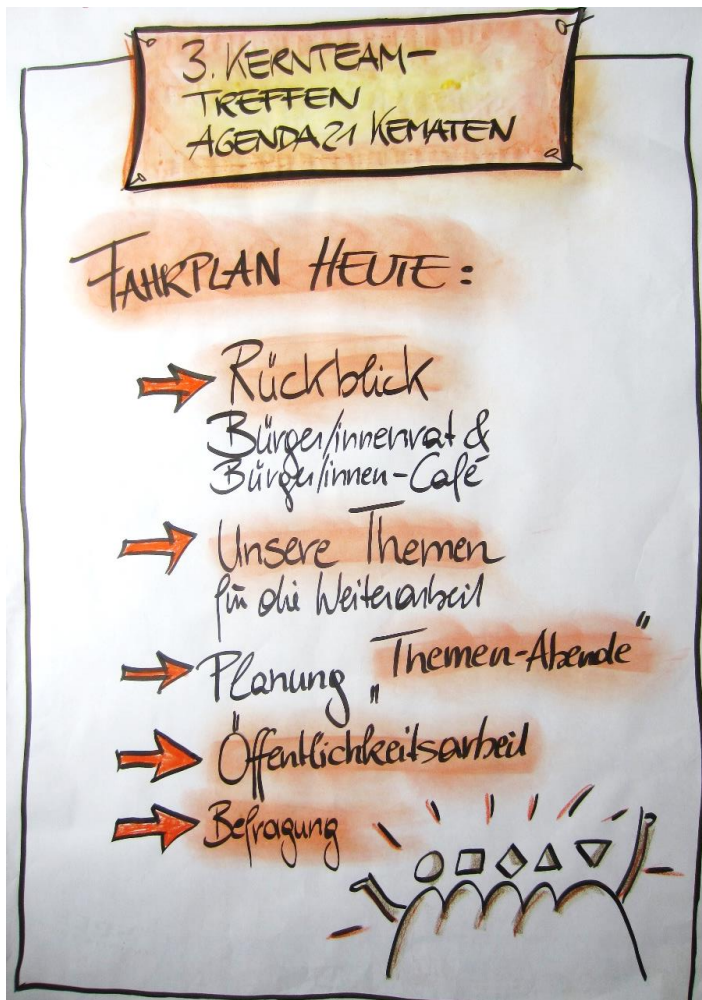 3. KERNTEAM-
TREFFEN
AGENDA 21 KEMATEN
FAHRPLAN HEUTE:
Rückblick
Bürger/innenrat &
Bürger/innen-Café
Unsere Themen
für die Weiterarbeit
Planung „Themen-Abende"
Öffentlichkeitsarbeit
Befragung